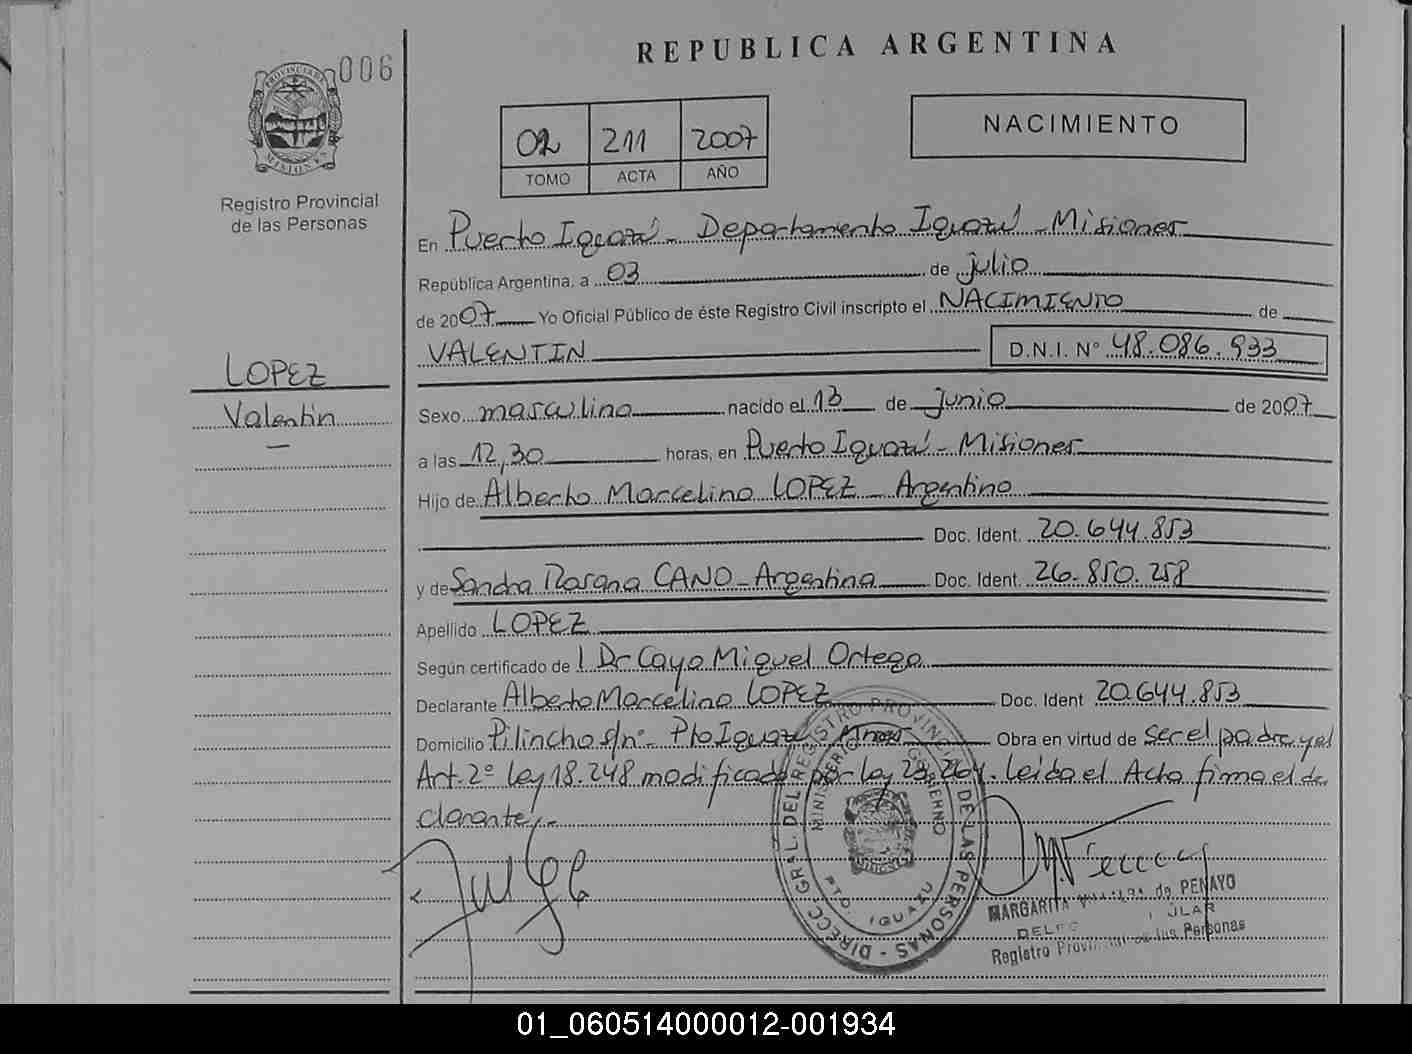 REPUBLICA ARGENTINA
006
PROVINCIA DE
MISIONES
Registro Provincial
de las Personas
02 211 2007
TOMO ACTA AÑO
NACIMIENTO
En Puerto Iguazú - Departamento Iguazú - Misiones
República Argentina, a 03 de julio
de 2007 Yo Oficial Público de éste Registro Civil inscripto el NACIMIENTO de
VALENTIN D.N.I. N° 48.086.933
LOPEZ
Valentin
Sexo masculino nacido el 13 de junio de 2007
a las 12,30 horas, en Puerto Iguazú - Misiones
Hijo de Alberto Marcelino LOPEZ - Argentino
Doc. Ident. 20.644.853
y de Sandra Rosana CANO - Argentina Doc. Ident. 26.850.258
Apellido LOPEZ
Según certificado de l Dr Cayo Miguel Ortega
Declarante Alberto Marcelino LOPEZ Doc. Ident 20.644.853
Domicilio Pilincho s/n°- Pto Iguazú Mnes Obra en virtud de ser el padre y el
Art. 2° Ley 18.248 modificada por Ley 23.264. Leida el Acta firma el de
clarante.-
DIRECC. GRAL. DEL REGISTRO PROVINCIAL DE LAS PERSONAS -
MINISTERIO GOBIERNO
PTO. IGUAZU
MARGARITA de PENAYO
Registro Provincial de las Personas
01_060514000012-001934